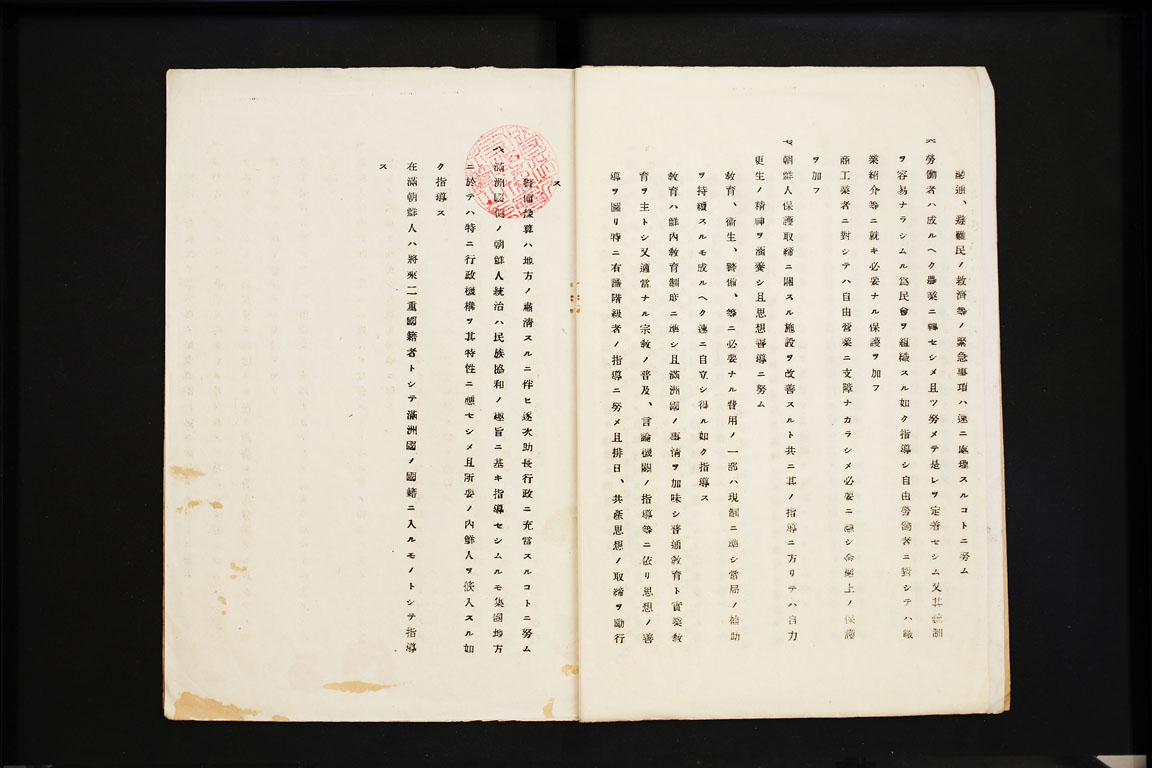 融通、避難民ノ救濟等ノ緊急事項ハ速ニ處理スルコトニ努ム
六、勞働者ハ成ルヘク農業ニ轉セシメ且ツ努メテ是レヲ定着セシム又其統制
ヲ容易ナラシムル爲民會ヲ組織スル如ク指導シ自由勞働者ニ對シテハ職
業紹介等ニ就キ必要ナル保護ヲ加フ
商工業者ニ對シテハ自由營業ニ支障ナカラシメ必要ニ應シ金融上ノ保護
ヲ加フ
七、朝鮮人保護取締ニ關スル施設ヲ改善スルト共ニ其ノ指導ニ方リテハ自力
更生ノ精神ヲ涵養シ且思想善導ニ努ム
教育、衞生、警備、等ニ必要ナル費用ノ一部ハ現制ニ準シ當局ノ補助
ヲ持續スルモ成ルヘク速ニ自立シ得ル如ク指導ス
教育ハ鮮內教育制度ニ準シ且滿洲國ノ事情ヲ加味シ普通教育ト實業教
育ヲ主トシ又適當ナル宗教ノ普及、言論機關ノ指導等ニ依リ思想ノ善
導ヲ圖リ特ニ有識階級者ノ指導ニ努メ且排日、共產思想ノ取締ヲ勵行
ス
警備施設等ハ地方ノ肅清スルニ伴ヒ逐次助長行政ニ充當スルコトニ努ム
八、滿洲國側ノ朝鮮人統治ハ民族協和ノ趣旨ニ基キ指導セシムルモ集團地方
ニ於テハ特ニ行政機構ヲ其特性ニ應セシメ且所要ノ內鮮人ヲ攸入スル如
ク指導ス
在滿朝鮮人ハ將來二重國籍者トシテ滿洲國ノ國籍ニ入ルモノトシテ指導
ス